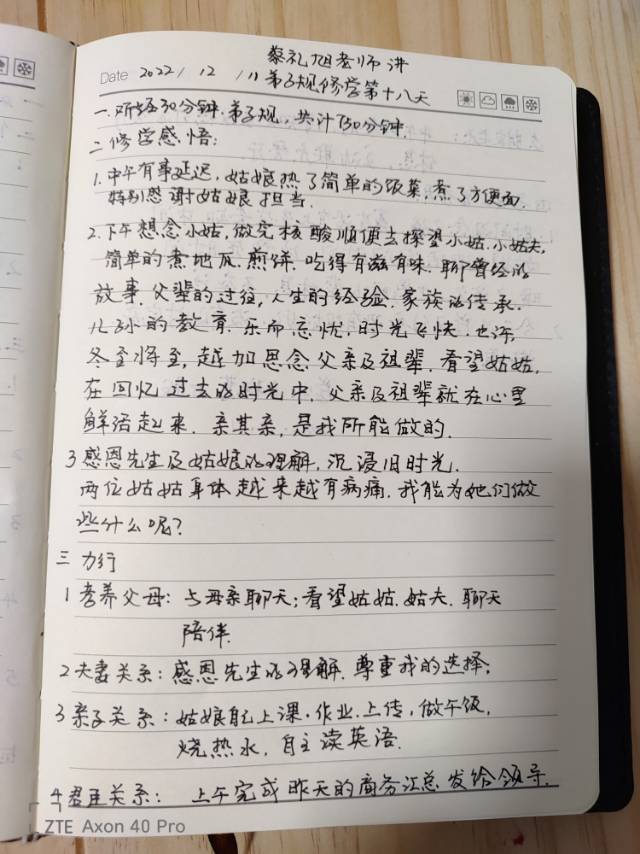 蔡礼旭老师讲
Date 2022/ 12 /11 弟子规修学第十八天
一.听经30分钟.弟子规，共计750分钟.
二.修学感悟:
1.中午有事延迟，姑娘热了简单的饭菜，煮了方便面.
特别感谢姑娘担当.
2.下午想念小姑，做完核酸顺便去探望小姑.小姑夫,
简单的煮地瓜.煎饼.吃得有滋有味.聊曾经的
故事.父辈的过往，人生的经验.家族的传承.
儿孙的教育.乐而忘忧，时光飞快.也许，
冬至将至，越加思念父亲及祖辈.看望姑姑，
在回忆过去的时光中，父亲及祖辈就在心里
鲜活起来.亲其亲，是我所能做的.
3感恩先生及姑娘的理解，沉浸旧时光.
两位姑姑身体越来越有病痛.我能为她们做
些什么呢?
三 力行
1孝养父母: 与母亲聊天;看望姑姑.姑夫.聊天
陪伴.
2夫妻关系: 感恩先生的理解.尊重我的选择;
3亲子关系: 姑娘自己上课.作业.上传，做午饭，
烧热水，自主读英语.
4君臣关系: 上午完成昨天的商务汇总发给领导.
ZTE Axon 40 Pro